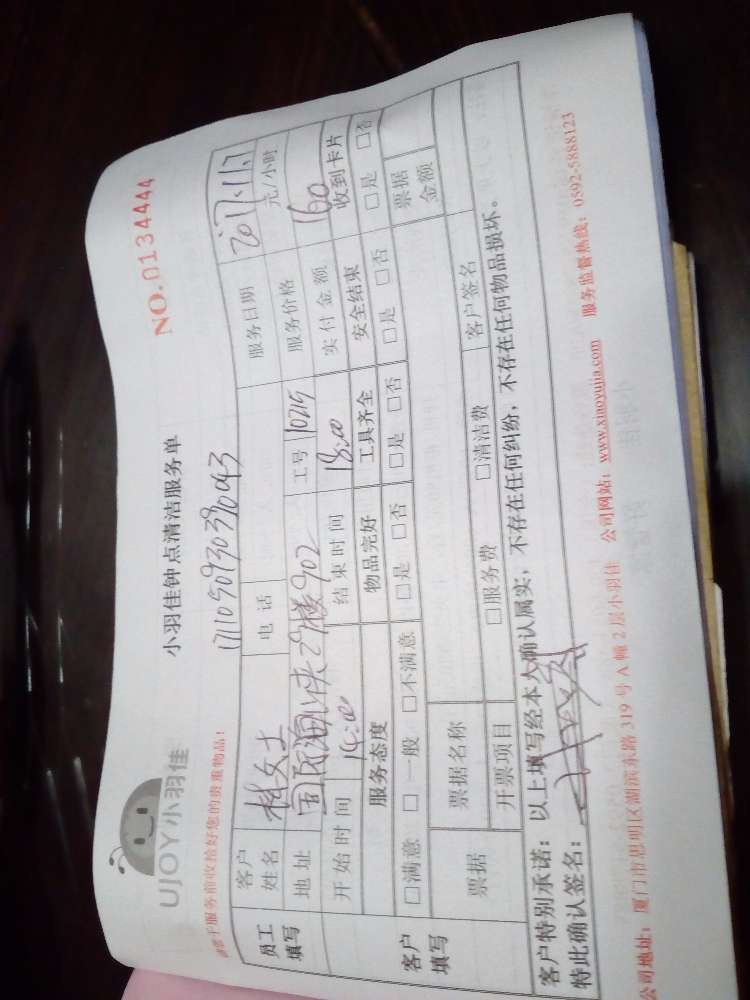 UJOY小羽佳
小羽佳钟点清洁服务单
NO.0134444
请您于服务前收拾好您的贵重物品!
1711050930398043
员工填写
客户姓名 林女士 电话 服务日期 2017.11.7
地址 29楼902 工号 10215 服务价格 元/小时
开始时间 14:00 结束时间 18:00 实付金额 160
客户填写
服务态度 物品完好 工具齐全 安全结束 收到卡片
□满意 □一般 □不满意 □是 □否 □是 □否 □是 □否 □是 □否
票据 票据名称 票据金额
开票项目 □服务费 □清洁费 客户签名
客户特别承诺: 以上填写经本人确认属实, 不存在任何纠纷, 不存在任何物品损坏。
特此确认签名:
公司地址: 厦门市思明区湖滨东路 319 号 A 幢 2 层小羽佳 公司网站: www.xiaoyujia.com 服务监督热线: 0592-5888123